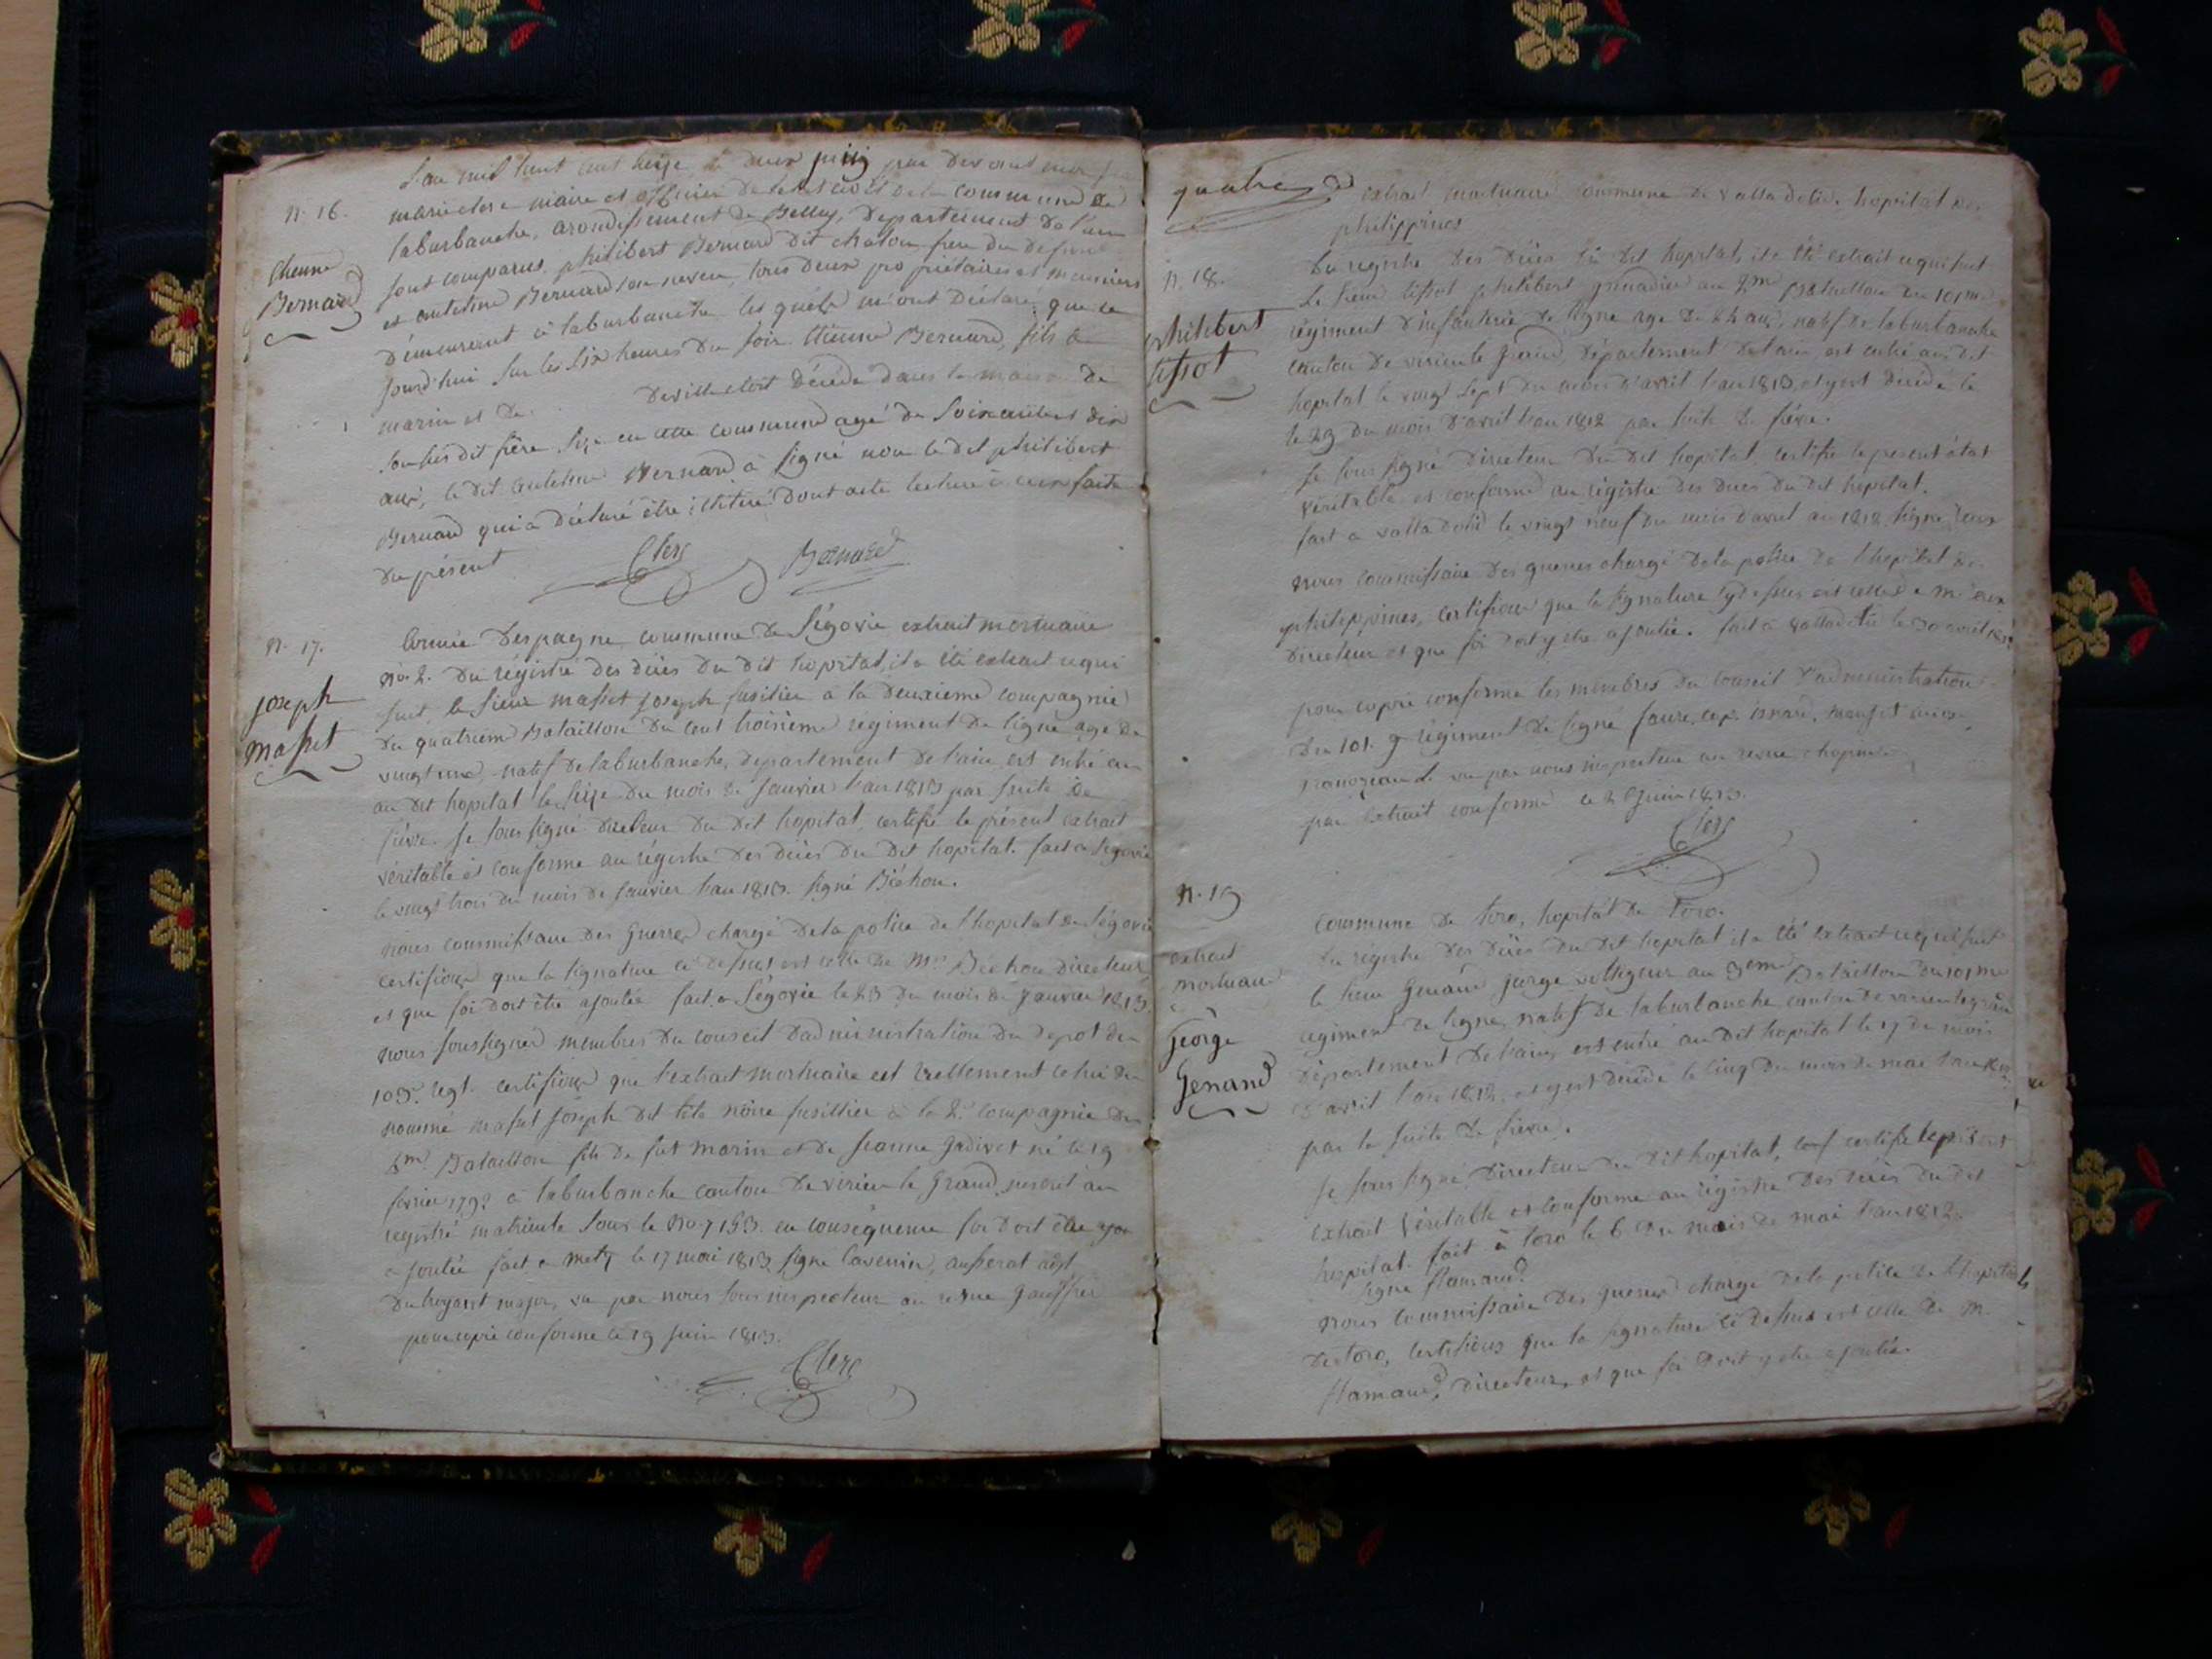 L'an mil huit cent treize le deux juin par devant moi
marin clerc maire et officier de l'état civil de la commune de
n. 16.
laburbanche, arondissement de Belley, département de l'ain
Etienne
Bernard
sont comparus philibert Bernard dit chalon frere du defunt
et anthelme Bernard son neveu, tous deux propriétaires et meuniers
demeurant à laburbanche les quels m'ont déclaré que ce
jourd'hui sur les six heures du soir Etienne Bernard, fils de
marin et de deville est décédé dans la maison de
son sus dit frère size en cette commune agé de soixante et dix
ans, le dit anthelme Bernard à signé non le dit philibert
Bernard qui a déclaré être illitéré dont acte lecture à eux faite
du présent
Clerc Bernard
n. 17.
joseph
masset
Armée d'espagne commune de Ségovie extrait mortuaire
n° 2. du régistre des décès du dit hopital, il a été extrait ce qui
suit, le sieur masset joseph fusilier a la deuxieme compagnie
du quatrieme Bataillon du cent troisieme régiment de ligne age de
vingt natif de laburbanche, département de l'ain, est entré
au dit hopital le seize du mois de janvier l'an 1813 par suite de
fièvre. Je soussigné directeur du dit hopital, certifie le présent extrait
véritable et conforme au régistre des décès du dit hopital. fait a Ségovie
le vingt trois du mois de janvier l'an 1813. signé Béchon.
nous commissaire des guerres chargé de la police de l'hopital de Ségovie
certifions que la signature ci dessus est celle de Mr Béchon directeur
et que foi doit être ajoutée fait a Ségovie le 23 du mois de janvier 1813
nous soussignés membres du conseil d'administration du depot du
103e regt. certifions que l'extrait mortuaire est réellement celui du
nommé masset joseph dit tete noire fusillier à la 2e compagnie du
4me Bataillon fils de fut marin et de jeanne né le 19
février 1792 à laburbanche canton de virieu le grand, inscrit au
registre matricule sous le no 7153. en conséquence foi doit être y
ajoutée fait a metz le 17 mai 1813 signé
major, vu par nous sous inspecteur au revue
pour copie conforme le 19 juin 1813.
Clerc
quatre
extrait mortuaire commune de valladolid, hopital des
philippines
n. 18.
philibert
tissot
Du registre des décès du dit hopital, il a été extrait ce qui suit
Le sieur tissot philibert grenadier au 2me Bataillon du 101me
régiment d'infanterie de ligne age de 24 ans, natif de laburbanche
canton de virieu le grand, département de l'ain est entré au dit
hopital le vingt sept du mois d'avril l'an 1812, et y est décédé le
le 29 du mois d'avril l'an 1812 par suite de fièvre.
Je soussigné directeur du dit hopital, certifie le present état
véritable et conforme au régistre des décès du dit hopital.
fait a valladolid le vingt neuf du mois d'avril an 1812 signé
nous commissaire des guerres chargé de la police de l'hopital des
philippines, certifions que la signature cy dessus est celle de Mr
directeur et que foi doit y etre ajoutée. fait à valladolid le 30 avril 1812
pour copie conforme les membres du conseil d'administration
du 101e régiment de ligne
vu par nous inspecteur au revue
par extrait conforme le juin 1813.
Clerc
n. 19
extrait
mortuaire
George
Genand
commune de toro, hopital de toro.
Du régistre des décès du dit hopital il a été extrait ce qui suit
le sieur george voltigeur au 3eme Bataillon du 101me
regiment de ligne, natif de laburbanche canton de virieu le grand
département de l'ain, est entré au dit hopital le 17 du mois
d'avril l'an 1812, et y est décédé le cinq du mois de mai l'an 1812
par la suite de fièvre.
Je soussigné, directeur du dit hopital, certifie le présent
extrait véritable et conforme au régistre des décès du dit
hopital. fait à toro le 6 du mois de mai l'an 1812.
signé flamand
nous commissaire des guerres chargé de la police de l'hopital
de toro, certifions que la signature ci dessus est celle de M.
flamand, directeur, et que foi doit y etre ajoutée.